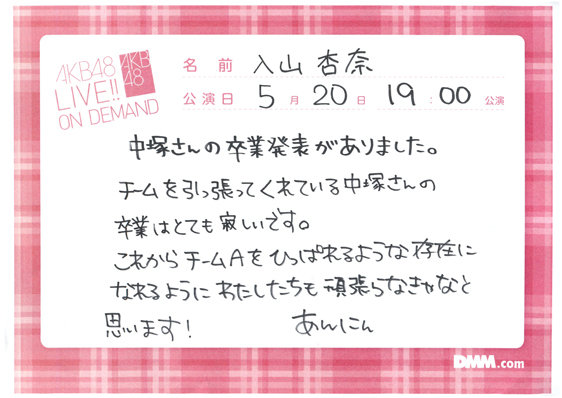 AKB48
LIVE!!
ON DEMAND
AKB
48
名前 入山杏奈
公演日 5月20日 19:00公演
中塚さんの卒業発表がありました。
チームを引っ張ってくれている中塚さんの
卒業はとても寂しいです。
これからチームAをひっぱれるような存在に
なれるようにわたしたちも頑張らなきゃなと
思います! あんにん
DMM.com